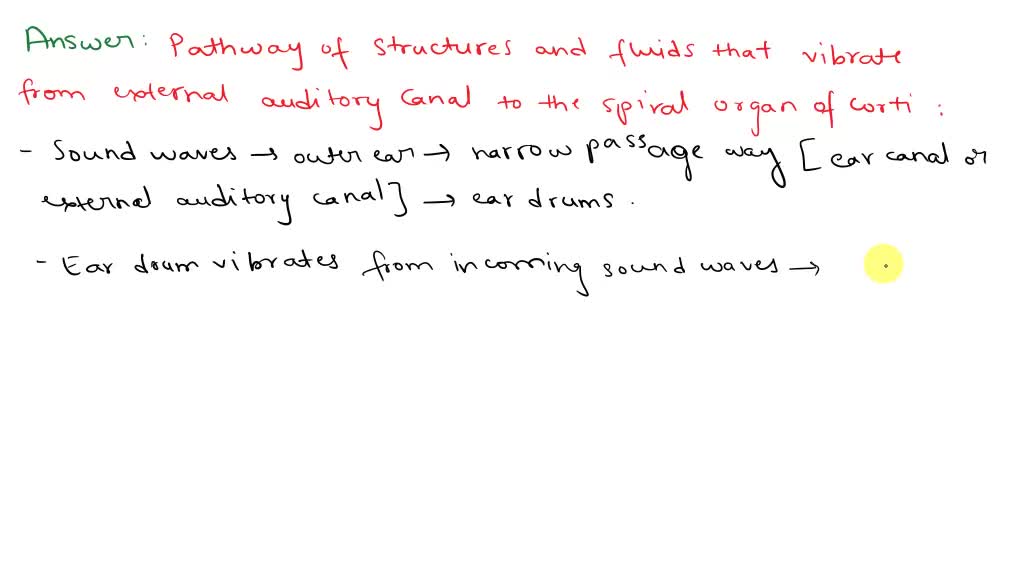 Answer: Pathway of structures and fluids that vibrate
from external auditory canal to the spiral organ of corti :
- Sound waves → outer ear → narrow passage way [ear canal or
external auditory canal] → ear drums.
- Ear drum vibrates from incoming sound waves →